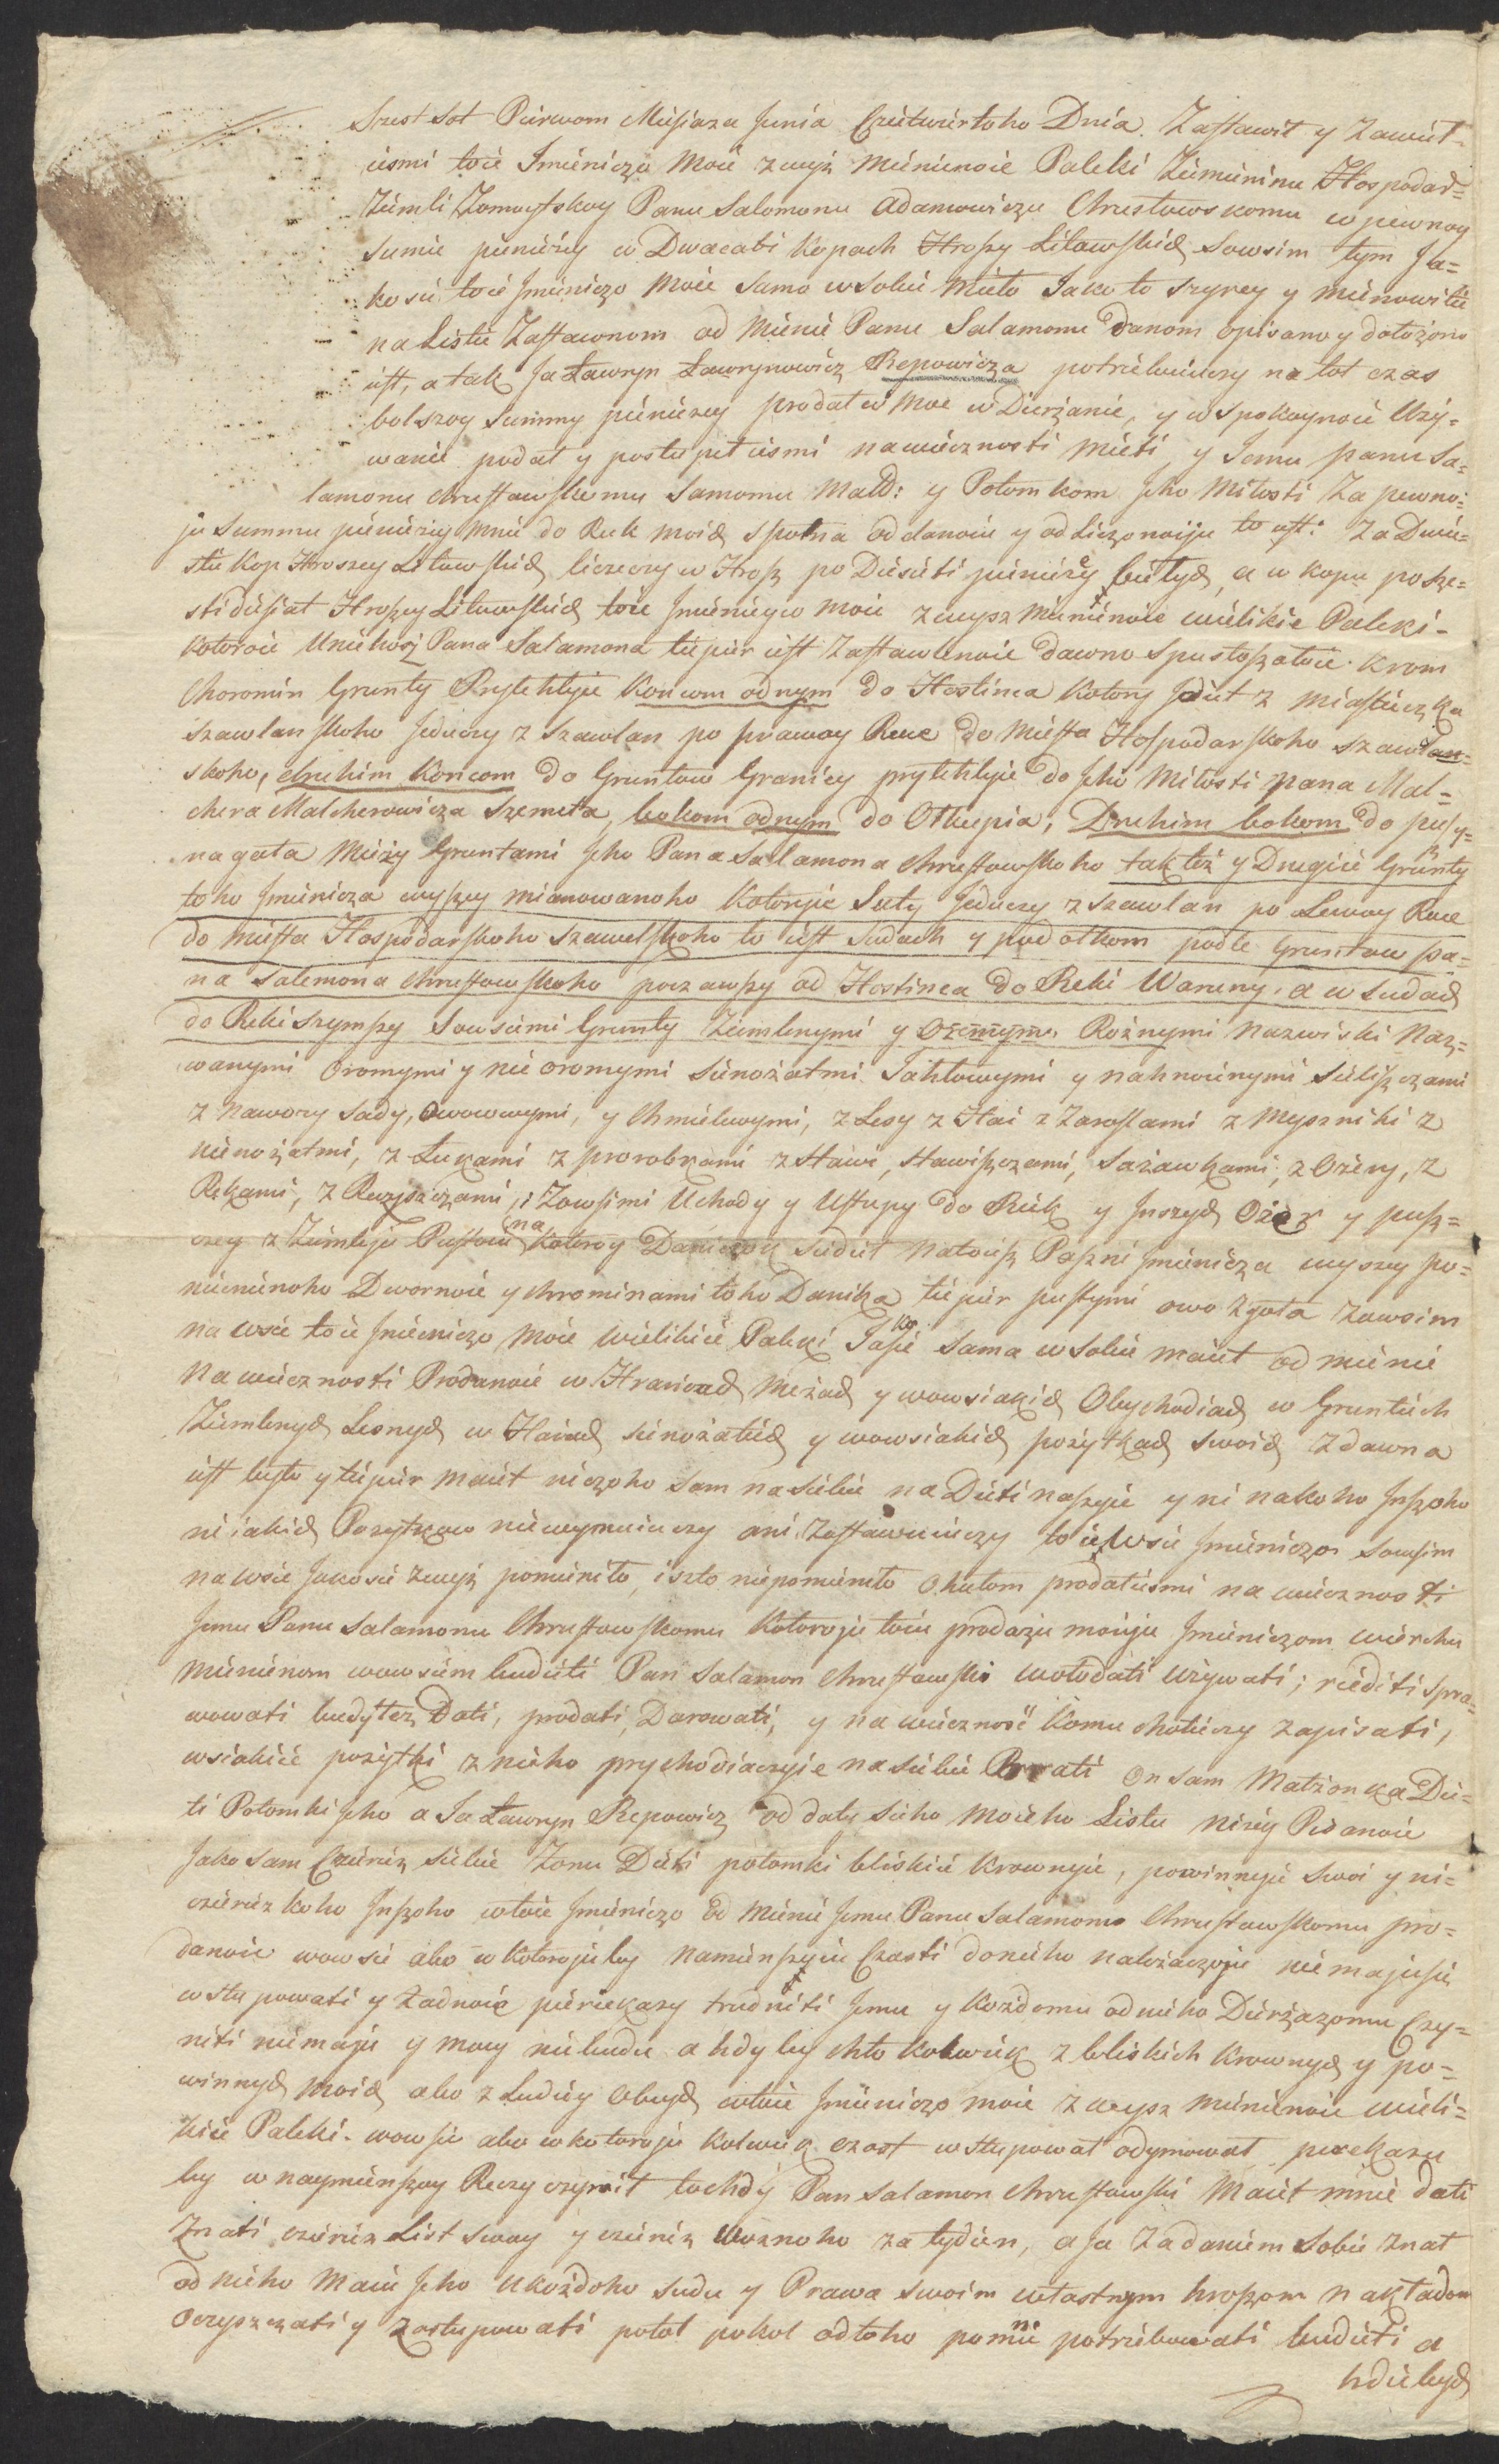 Szest Sot Pierwom Miesiaca Junia Czetwertoho Dnia. Zastawił y Zawiel-
iesmi toie Imienicze Moie zwysz mienienoie Paleki Ziemieninu Hospodar=
Ziemli Zomoytskoy Panu Salomonu Adamowiczu Chrustowskomu w pewnoy
sumie pieniezey w Dwacati Kopach Hroszy Litawskich Sowsim tym Ja=
ko sie toie Imieniczo Moie Samo w Sobie Mieło Jako to szyrey y mienowitie
na Listie Zastawnom od Mienie Panu Salamonu Danom opisano y dołożono
iest, a tak Ja Ławryn Ławrynowicz Repowicza potriebuiuczy na tot czas
bolszoy Summy pieniezey prodał w Moc w Dierzanie, y w spokoynoie Uzy=
wanie podał y postupił iesmi na wiecznosti mieti y Jemu panu Sa=
lamonu Chrustawskomu Samomu Małż: y Potomkom Jeho Miłosti Za pewno=
ju Summu pieniezey mnie do Ruk moich spolna oddanoiu y odliczonoiju to iest: Za Dwie=
stie Kop Hroszey Litawskich liczeczy w Hrosz po Diesieti pieniezey biełych, a w kopu po sze=
sti diesiat Hroszey Litawskich toie Imienicyo Moie zwysz Mienienoie wielikie Paleki-
Kotoroie Unieho sz Pana Salamona tiepier iest Zastawlenoie dawno Spustoszałoie. krom
Choromin Grunty Prylehłyie Koncom odnym do Hostinca Kotory jdiet z Miasteczka
Szawlanskoho Jeduczy z Szawlan po prawoy Ruce do Miesta Hospodarskoho Szawlan=
skoho, druhim Koncom do Gruntow Granicy prylehłyie do Jeho Miłosti Pana Mal=
chera Malcherowicza Szemeta, bokom odnym do Otkupia, Druhim bokom do pusy=
nagala Mieży Gruntami Jeho Pana Salamona Chrustawskoho także y Drugiie Grunty
toho Imienicza wyszey mianowanoho Kotoryie Suty Jeduczy z Szawlan po Lewoy Ruce
do Miesta Hospodarskoho Szawelskoho to iest Sudach y podołkom podle Gruntow pa=
na Salemona Chrustawskoho poczawszy od Hostinca do Reki Wareny, a w Sudach
do Reki Szympzy Sowsiemi Grunty Ziemlenymi y Oziemymi Rożnymi Nazwiski Naz=
wanymi Oromymi y nie oromymi Sienożatmi Jahłowymi y nahnoienymi, Sieliszczami
z Nawozy Sady, Owowowymi, y Chmielowymi, z Lesy z Hai z Zaroslami z Myszniki z
Sienożatmi, z Łukami z prorobkami z Stawi, Stawiszczami, Sażawkami, z Ozery, z
Rekami, z Reczyszczami, z Zowsimi Uchody y Ustupy do Riek y Inszych Ozier y pusz=
czey z Ziemleju Pustoiu na Kotoroy Daniczok Sidiet Natoiesz Paszni Imienicza wyszey po=
mienienoho Dwornoie y chrominami toho Danika tiepier pustymi owo Zgoła Zowsim
na wsie toie Imieniczo Moie Wielikiie Paleki Jakosie Sama w Sobie maiet od mienie
Na wiecznosti Prodanoie w Hranicach Mieżach y wowsiakich Obychodiach w Gruntiech
Ziemlenych Lesnych w Haiach sienożatiech y wowsiakich pożytkach swoich Zdawna
iest było y tiepier Maiet niczoho Sam na Siebie na Dieti naszyie y ni na koho Inszoho
niiakich Pożytkow niewymuiuczy ani Zastawuiuczy toie Wsie Imieniczo Sowsim
na wsie Jakosie Zwysz pomienito, iszto niepomienito Ohułom prodałiesmi na wiecznosti
Jemu Panu Salamonu Chrustowskomu Kotoroju toiu prodażu moieju Imieniczom wierchu
mienienom wowsiem budieti Pan Salamon Chrustawski wołodati Używati; riediti Spra=
wowati budyteż Dati, prodati, Darowati, y na wiecznost' Komu chotieczy Zapisati,
wsiakiie pożytki z nieho prychodiaczyie na Siebie Brati On Sam Małżonka Die=
ti Potomki Jeho a Ja Ławryn Repowicz od daty sieho Moieho Listu niżey Pisanoie
Jako Sam Czerez Siebie Żonu Dieti potomki bliskiie krownyie, powinnyie Swoi y ni=
czerez koho Inszoho wtoie Imieniczo od Mienie Jemu Panu Salamonu Chrustawskomu pro=
danoie wowsie abo w kotorojuby Namienszyiu Czasti donieho należaczuju nie maju sie
wstupowati y Żadnoia pierekazy trudniti Jemu y Kożdomu od nieho Dierżaczomu Czy=
niti nie maju y mocy nie budu a hdy by chto Kolwiek z bliskich krownych y po=
winnych Moich abo z Ludiey obcych wtoie Imieniczo moie zwysz mienienoie wieli=
kiie Paleki. wowsie abo w kotoroju Kolwiek czast wstupował odymował perekazu
by w naymienszoy Reczy czynił tohdy Pan Salamon Chrustawski Maiet mnie dati
Znati czerez List Swoy y czerez Woznoho za tydien, a Ja Zadaniem Sobie Znat
od nieho Maiu Jeho u kożdoho Sudu y Prawa Swoim własnym hroszom nakładom
oczyszczati y Zastupowati potol pokol odtoho pomienie potriebowati budieti a
hdie bych